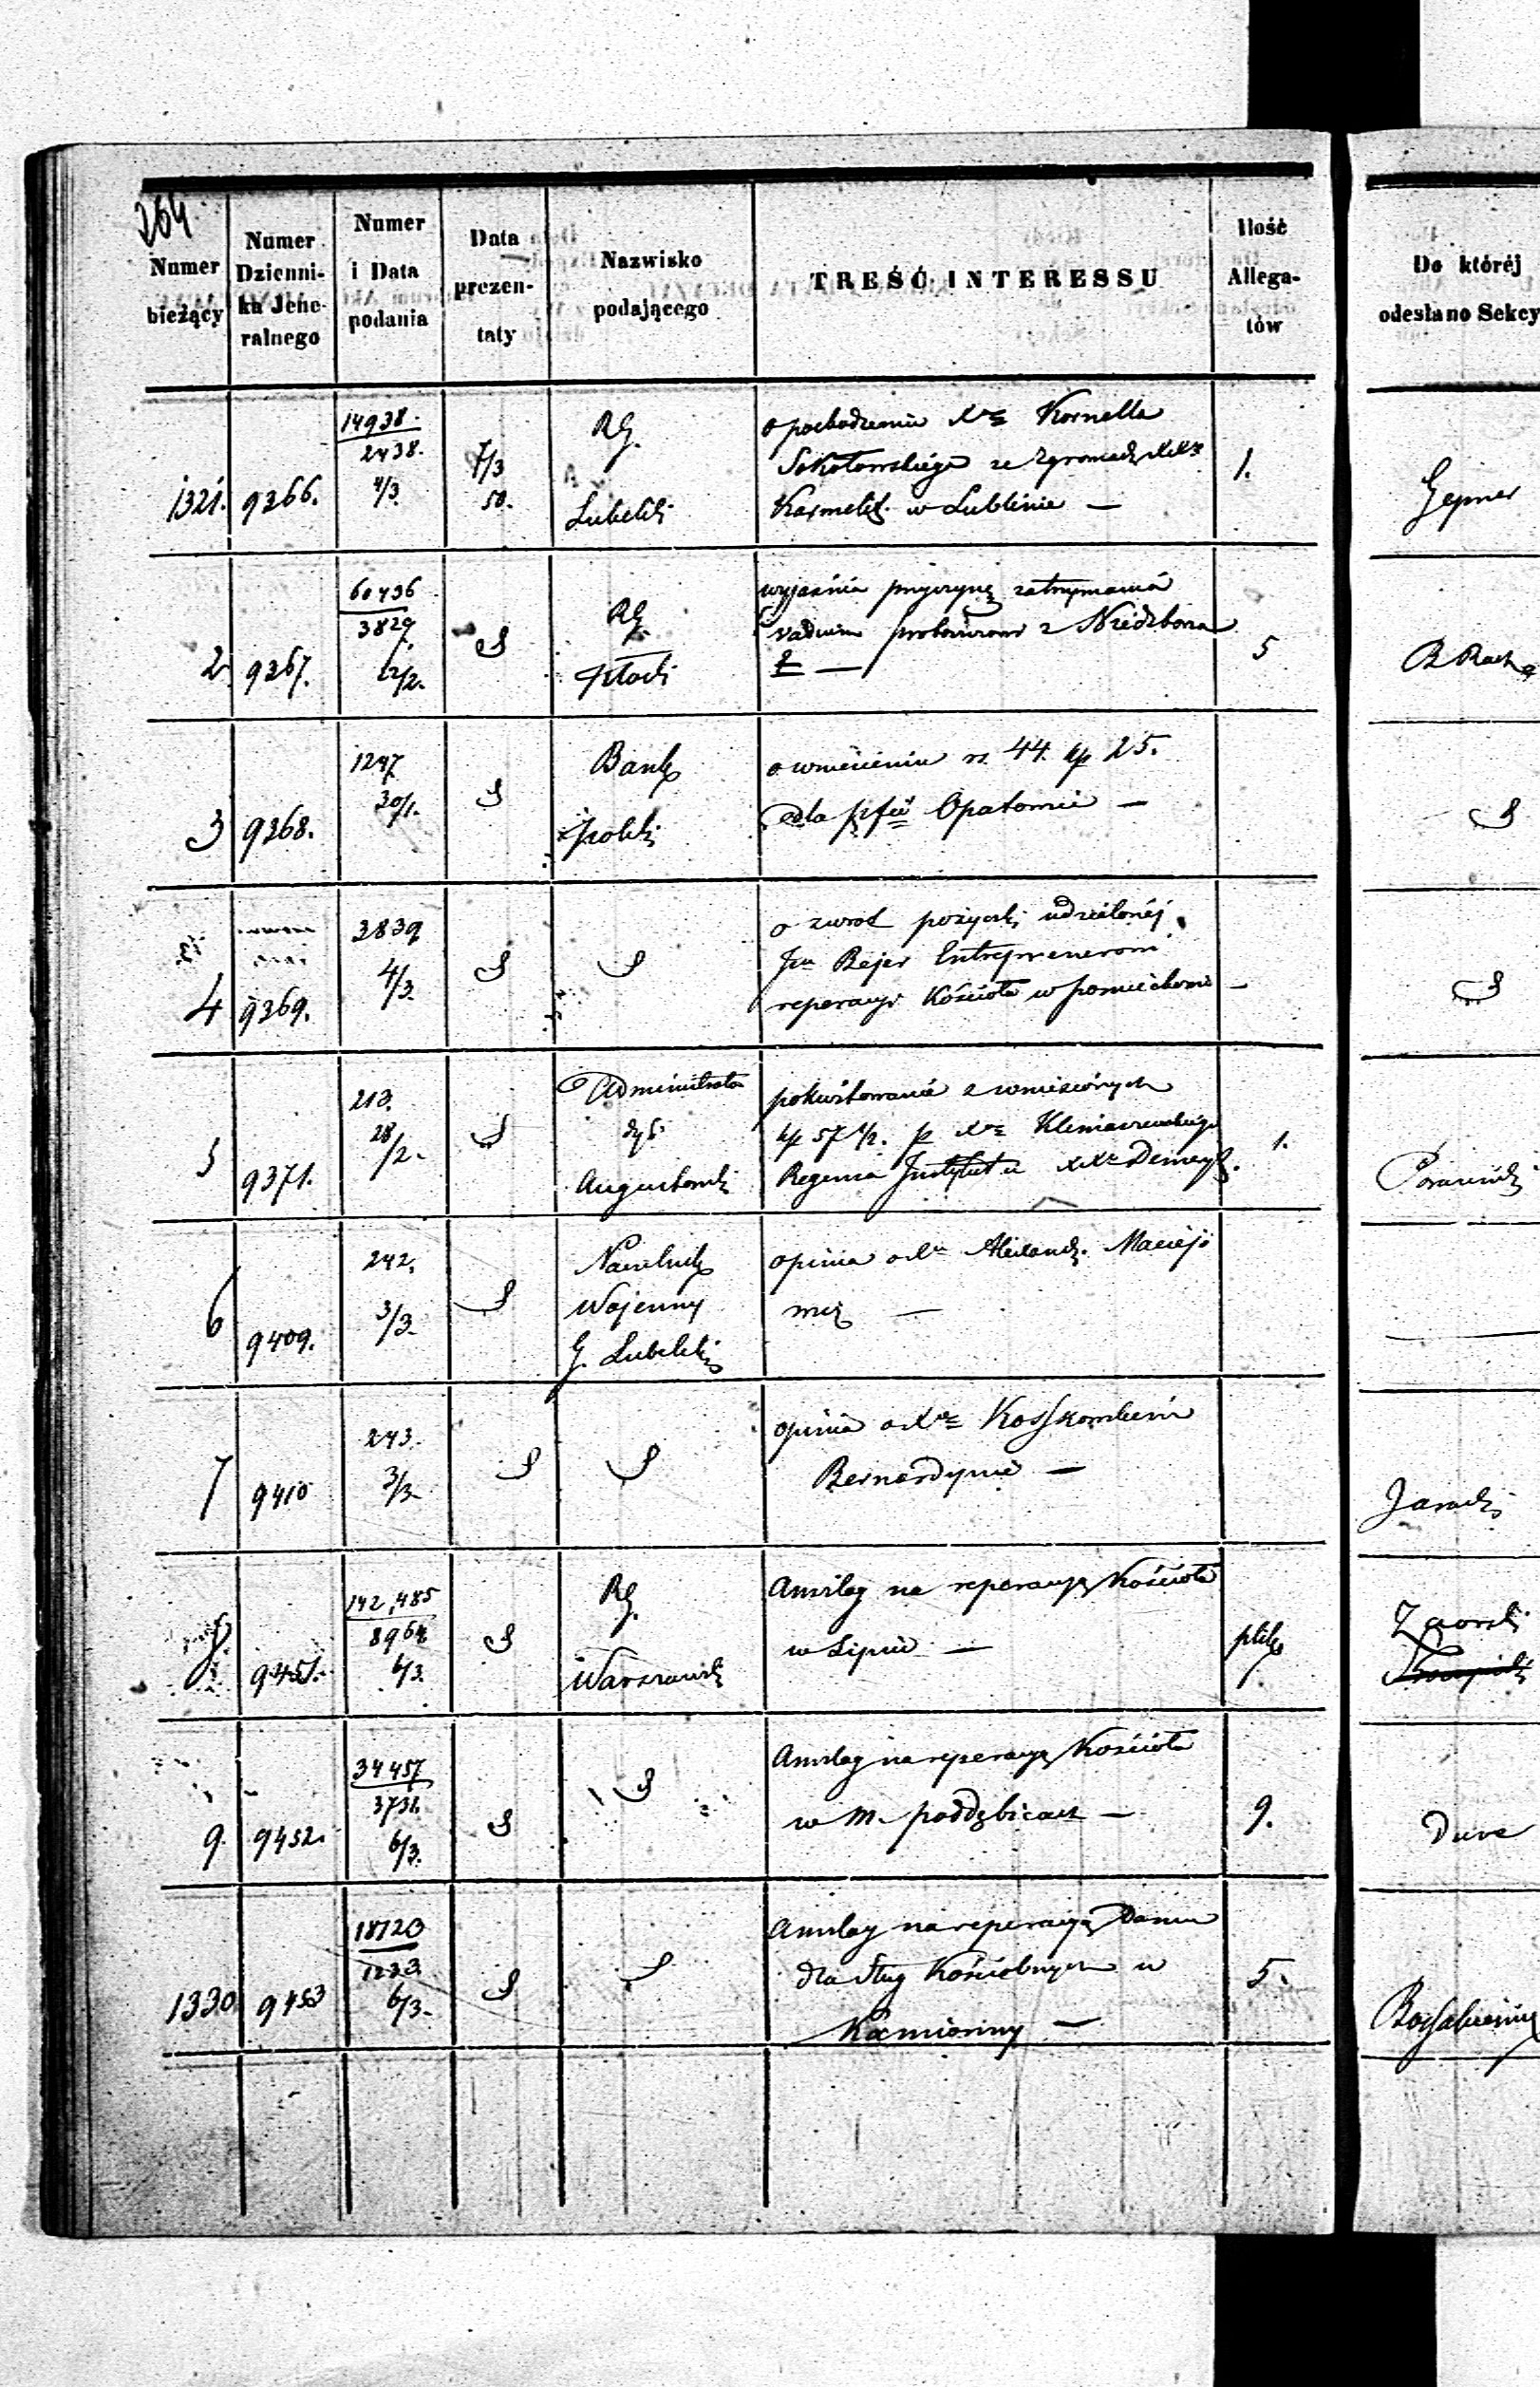 264.
Numer bieżący
Numer Dzienni- ka Jene- ralnego
Numer i Data podania
Data prezen- taty
Nazwisko podającego
TREŚĆ INTERESSU
Ilość Allega- tów
Do któréj odesłano Sekcy
1321. 9366. 14938. 2438. 4/3. 7/3 50. RG. Lubelski
o pochodzeniu Xa Kornella
Sokołowskiego ze Zgromadz. XX
Karmelit. w Lublinie — 1.
2 9367. 60436 3829. 22/2. RG. Płocki
wyjaśnia przyczynę zatrzymania
vadium 5
3 9268. 1247 30/1. Bank polski
o wniesieniu rs. 44. kp 25.
dla Opatowie —
4 9369. 2839 4/3.
o zwrot pożyczki udzielonéj
Jnu Bejer Entreprenerowi
reperacyi Kościoła w —
5 9371. 213. 28/2. Administrator dyć. Augustowski
pokwitowanie z wniesionych
kp 57 1/2. p Xa
Regensa Instytutu XX Demeryt. 1.
6 9409. 242. 3/3. Naczelnik Wojenny G. Lubelskiej
opinia o Xu Alexand. Maciejo
wicz —
7 9410 243. 3/3.
opinia o Xu
Bernardynie —
8 9451. 142,485 8964 6/3. RG. Warszawski
Anszlag na reperacyę Kościoła
w Lipiu — plik
9. 9452. 34457 3731. 6/3.
Anszlag na reperacyę Kościoła
w M. Poddębicach — 9. Duve
1330 9453 18720 1233 6/3.
Anszlag na reperacyą Domu
dla Sług Kościelnych w
Kamionny — 5.